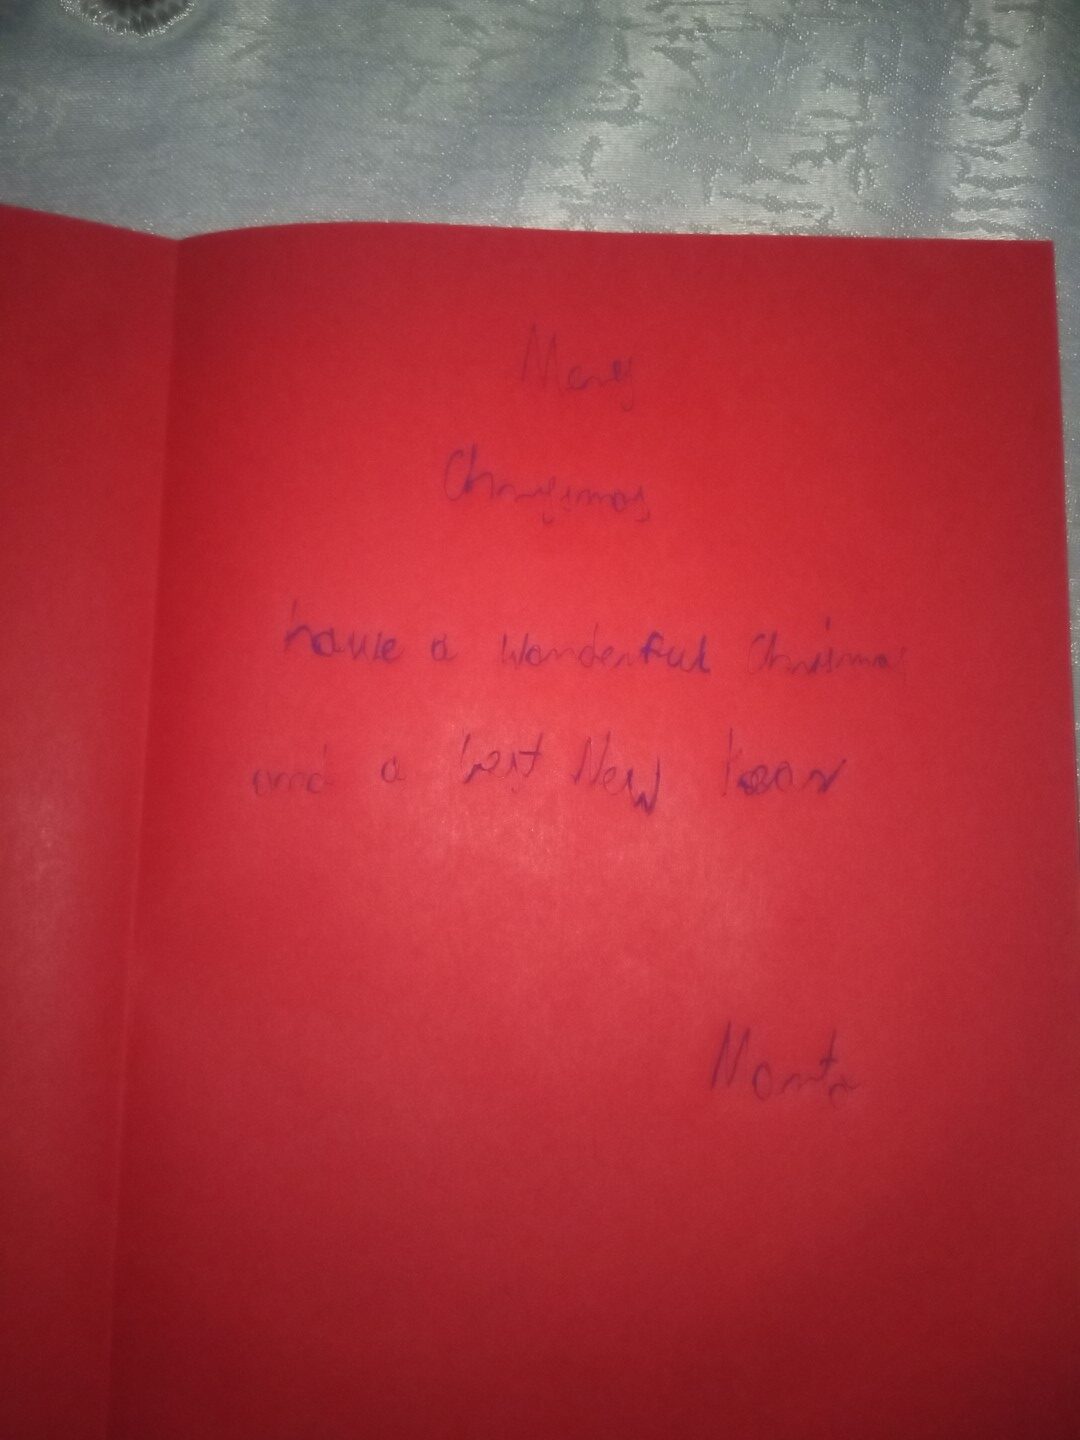 Merry
Chrisjmas
have a wonderful Chrisma
and a best New Year